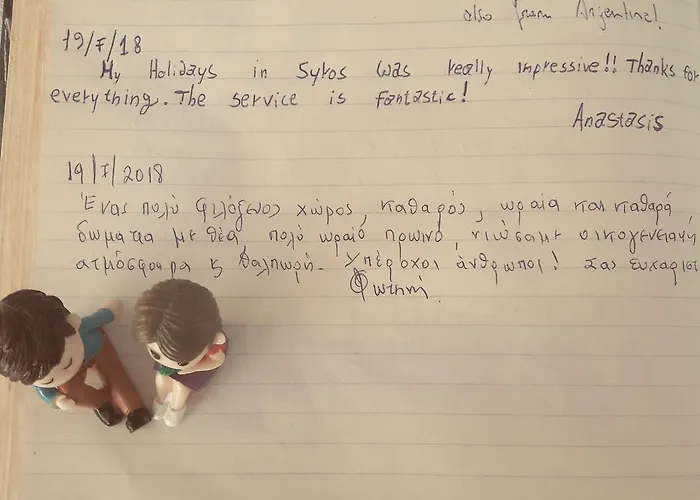 also from Argentina!
19/7/18
My Holidays in Syros was really inpressive!! Thanks for
everything. The service is fantastic!
Anastasis
19/7/2018
Ένας πολύ φιλόξενος χώρος, καθαρός, ωραία και καθαρά
δωμάτια με θέα, πολύ ωραίο πρωινό, νιώσαμε οικογενειακή
ατμόσφαιρα & θαλπωρή. Υπέροχοι άνθρωποι! Σας ευχαριστ
Φωτεινή.